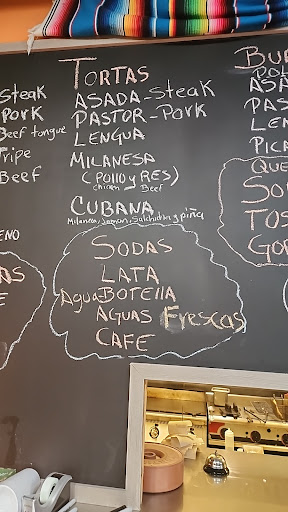 Steak
Pork
Beef tongue
Tripe
Beef
TORTAS
ASADA-Steak
PASTOR-Pork
LENGUA
MILANESA
(POLLO y RES)
chicken Beef
CUBANA
Milanesa, Jamon, Salchicha y piña
SODAS
LATA
Agua BOTELLA
AGUAS Frescas
CAFE